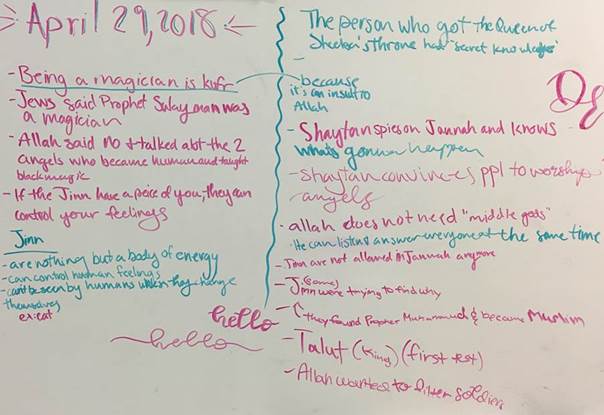 April 29, 2018
- Being a magician is kufr
- Jews said Prophet Sulayman was
a magician
- Allah said no & talked abt the 2
angels who became human and taught
black magic
- If the Jinn have a peice of you, they can
control your feelings
Jinn
- are nothing but a body of energy
- can control human feelings
- can't be seen by humans when they change
themselves
ex: cat
hello
hello
The person who got the Queen of
Sheeba's throne had "secret knowledge"
-
because
it's an insult to
Allah
- Shaytan spies on Jannah and knows
what's gonna happen
- shaytan convinces ppl to worship
angels
- allah does not need "middle gods"
- He can listen & answer everyone at the same time
- Jinn are not allowed in Jannah anymore
- Jinn (some) were trying to find why
- they found Prophet Muhammad & became Muslim
- Talut (King) (first test)
- Allah wanted to filter soldiers